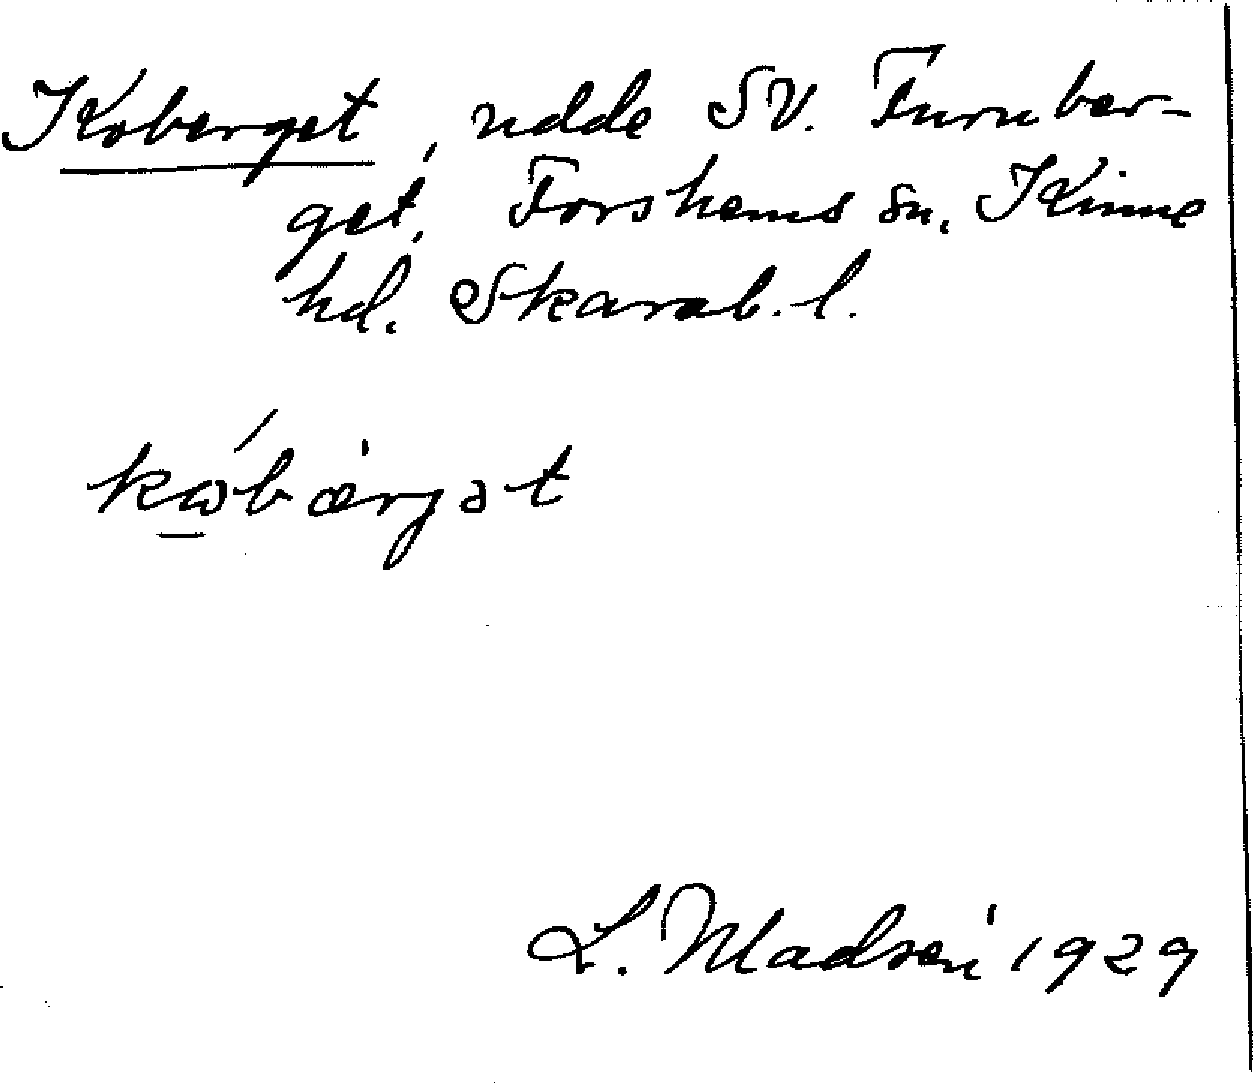 Koberget, udde SV. Furuber-
get, Forshems sn. Kinne
hd. Skarab. l.
kɷ́bærgət
L. Madsén 1929